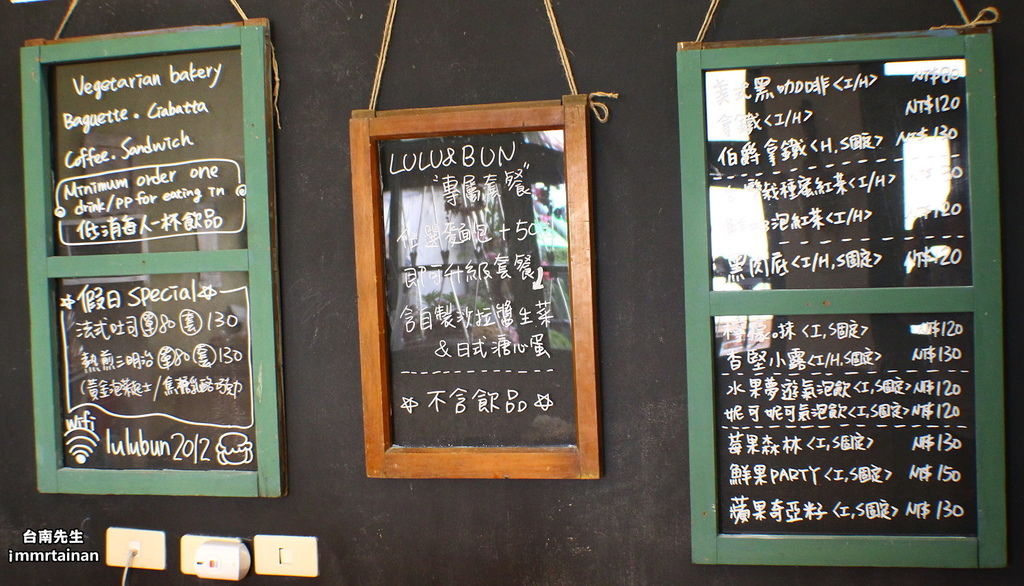 Vegetarian bakery
Baguette. Ciabatta
Coffee. Sandwich
Minimum order one
drink/PP for eating in
低消每人一杯飲品
假日 Special
法式吐司 單80 套130
熱煎三明治 單80 套130
wifi
lulubun2012
LULU&BUN
專屬套餐
任選麵包+50
即可升級套餐
含自製沙拉醬生菜
&日式溏心蛋
不含飲品
美式黑咖啡<I/H> NT$80
拿鐵<I/H> NT$120
伯爵拿鐵<H,S固定> NT$130
紅茶<I/H>
泡紅茶<I/H> 120
<I/H,S固定> NT$120
<I,S固定> NT$120
香堅小露<I/H.S固定> NT$130
水果夢遊氣泡飲<I,S固定> NT$120
妮可妮可氣泡飲<I,S固定> NT$120
莓果森林<I,S固定> NT$130
鮮果PARTY<I,S固定> NT$150
蘋果奇亞籽<I,S固定> NT$130
台南先生
immrtainan